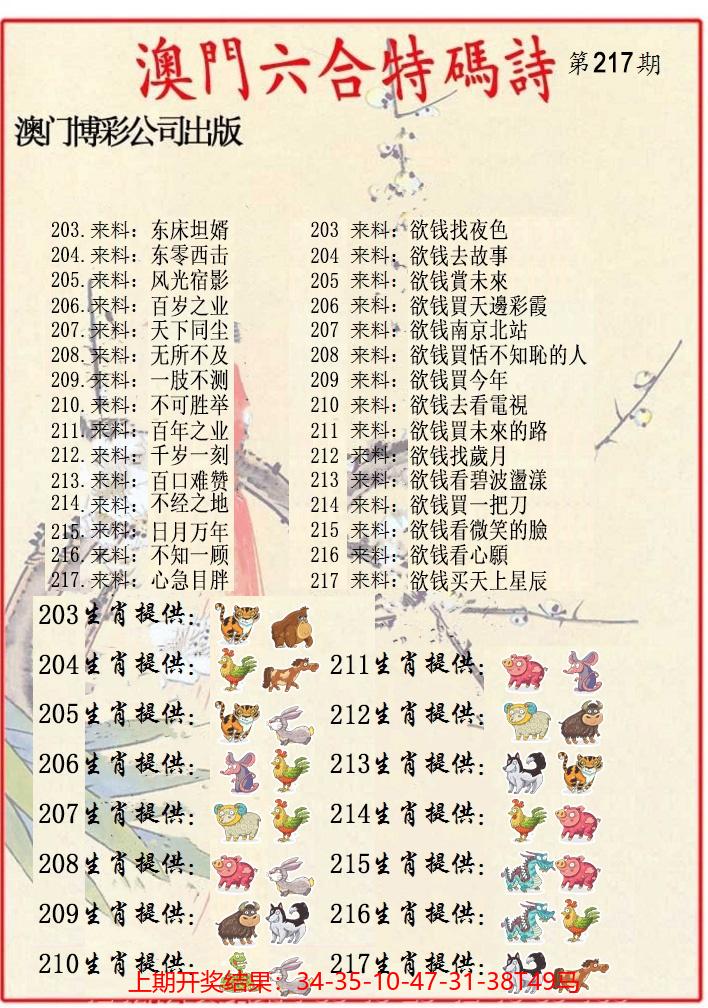 澳門六合特碼詩 第217期
澳门博彩公司出版
203.来料：东床坦婿
204.来料：东零西击
205.来料：风光宿影
206.来料：百岁之业
207.来料：天下同尘
208.来料：无所不及
209.来料：一肢不测
210.来料：不可胜举
211.来料：百年之业
212.来料：千岁一刻
213.来料：百口难赞
214.来料：不经之地
215.来料：日月万年
216.来料：不知一顾
217.来料：心急目胖
203 来料：欲钱找夜色
204 来料：欲钱去故事
205 来料：欲钱賞未來
206 来料：欲钱買天邊彩霞
207 来料：欲钱南京北站
208 来料：欲钱買恬不知恥的人
209 来料：欲钱買今年
210 来料：欲钱去看電視
211 来料：欲钱買未來的路
212 来料：欲钱找歲月
213 来料：欲钱看碧波盪漾
214 来料：欲钱買一把刀
215 来料：欲钱看微笑的臉
216 来料：欲钱看心願
217 来料：欲钱买天上星辰
203生肖提供：
204生肖提供：
205生肖提供：
206生肖提供：
207生肖提供：
208生肖提供：
209生肖提供：
210生肖提供：
211生肖提供：
212生肖提供：
213生肖提供：
214生肖提供：
215生肖提供：
216生肖提供：
217生肖提供：
上期开奖结果：34-35-10-47-31-38T49号